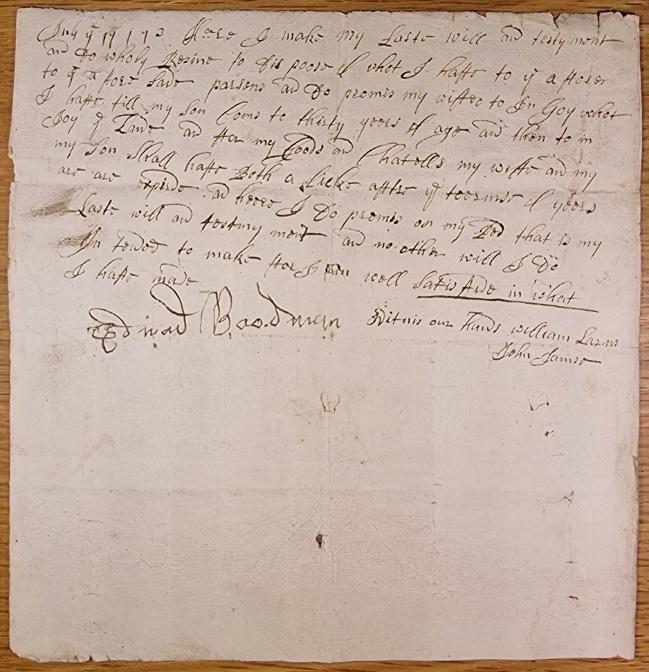 July ye 17 1713 Heere I make my Laste will and testyment
and Do wholy Desine to Dis poose of whot I haffe to ye a fforer
to ye a fore sade parsons and Do promis my wiffee to In Goy whot
I haffe till my son Coms to thirty yeers of age and then to in
Joy ye Land and ffor my Goods and Chatells my wiffe and my
my Son Shall haffe Both a Licke afftre ye teermse of yeers
are are expirde and heere I Do promis on my Ded that is my
Laste will and testmy ment and no other will I Do
In tended to make ffor I am well Satisfide in what
I haffe made
Edward Boodmen
Witnis our hands william
John Jamse